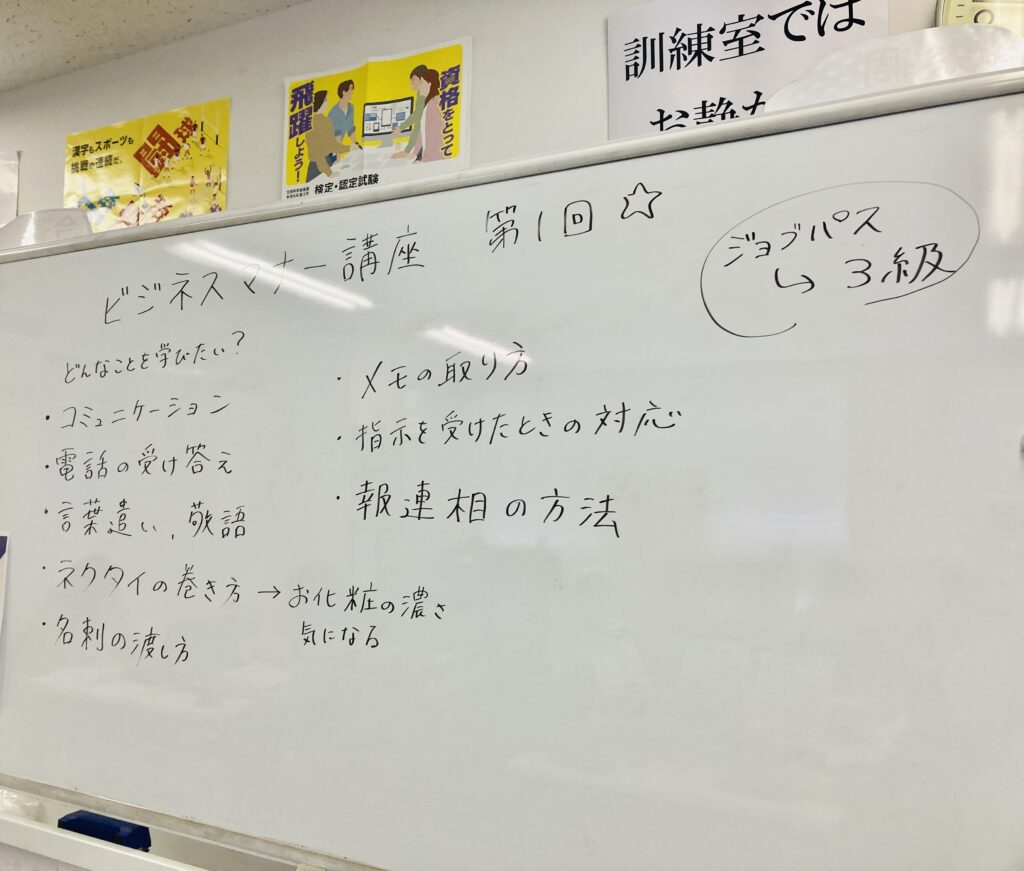 訓練室では
お静か
資格をとって
飛躍しよう!
検定・認定試験
漢字もスポーツも
挑戦の連続だ。
闘球
ビジネスマナー講座 第1回☆
ジョブパス
↳ 3級
どんなことを学びたい?
・コミュニケーション
・電話の受け答え
・言葉遣い、敬語
・ネクタイの巻き方 → お化粧の濃さ
気になる
・名刺の渡し方
・メモの取り方
・指示を受けたときの対応
・報連相の方法